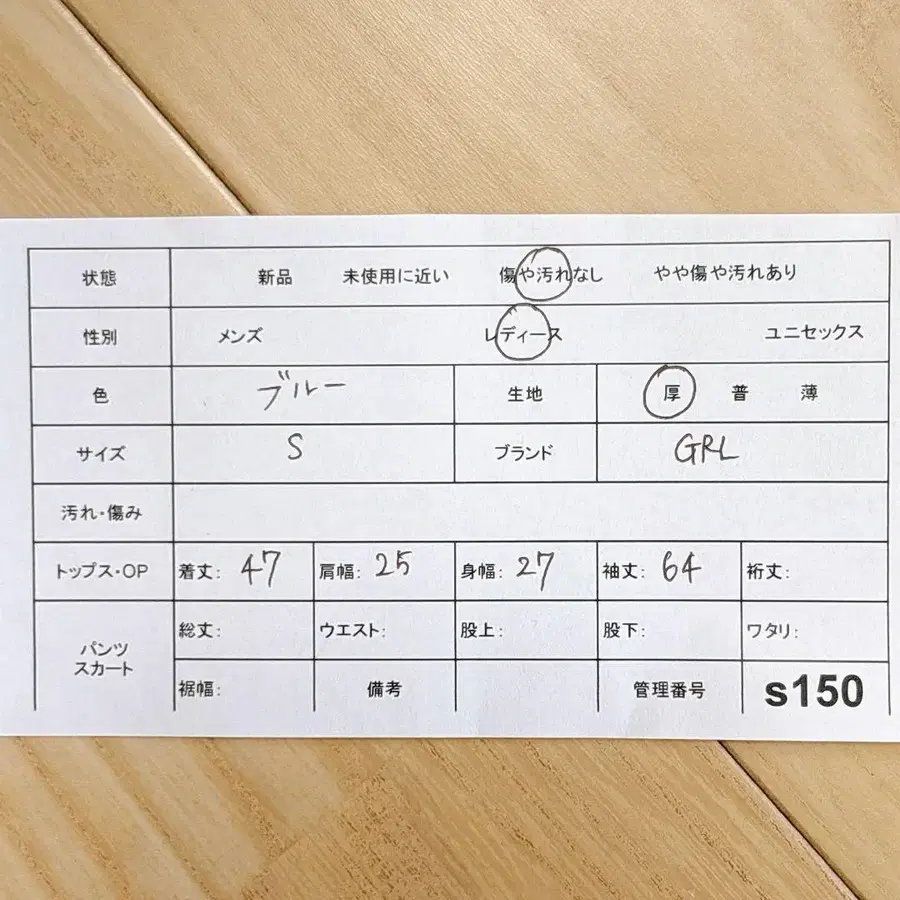 状態 新品 未使用に近い 傷や汚れなし やや傷や汚れあり
性別 メンズ レディース ユニセックス
色 ブルー 生地 厚 普 薄
サイズ S ブランド GRL
汚れ・傷み
トップス・OP 着丈: 47 肩幅: 25 身幅: 27 袖丈: 64 裄丈:
パンツ
スカート
総丈: ウエスト: 股上: 股下: ワタリ:
裾幅: 備考 管理番号 s150